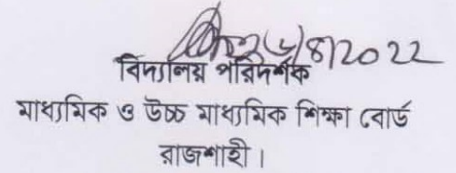 /8/2022
বিদ্যালয় পরিদর্শক
মাধ্যমিক ও উচ্চ মাধ্যমিক শিক্ষা বোর্ড
রাজশাহী।